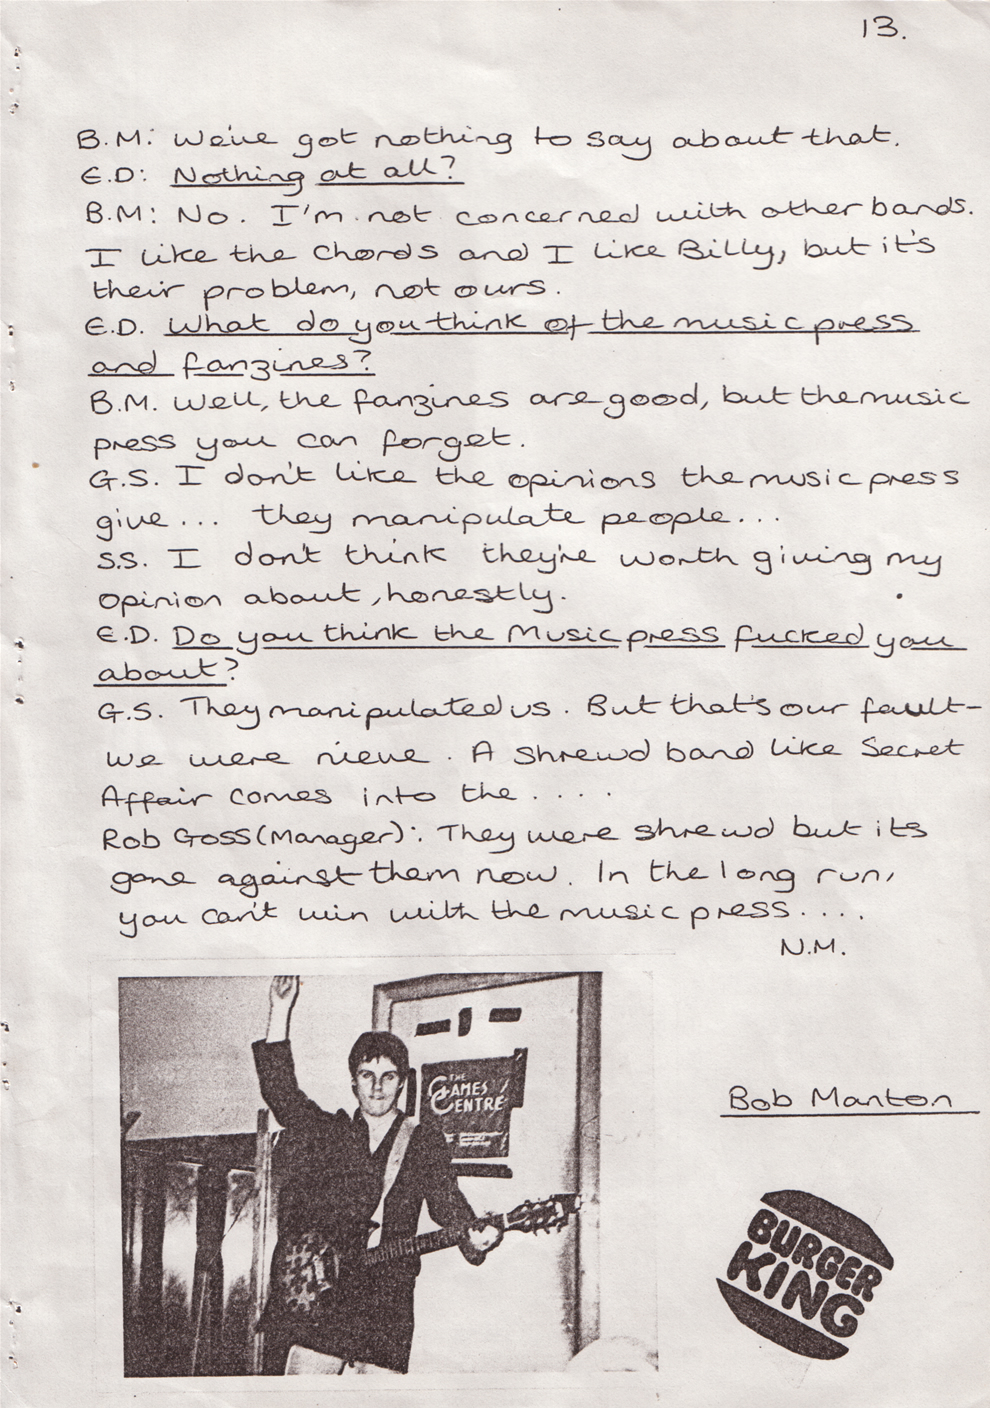 13.
B.M: We've got nothing to say about that.
E.D: Nothing at all?
B.M: No. I'm not concerned with other bands.
I like the Chords and I like Billy, but it's
their problem, not ours.
E.D. What do you think of the music press
and fanzines?
B.M. Well, the fanzines are good, but the music
press you can forget.
G.S. I don't like the opinions the music press
give... they manipulate people...
S.S. I don't think they're worth giving my
opinion about, honestly.
E.D. Do you think the Music press fucked you
about?
G.S. They manipulated us. But that's our fault-
we were nieve. A shrewd band like Secret
Affair comes into the....
Rob Goss (Manager): They were shrewd but its
gone against them now. In the long run,
you can't win with the music press....
N.M.
THE
GAMES
CENTRE
Bob Manton
BURGER
KING